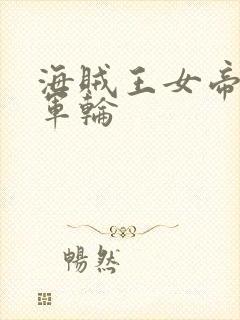 海賊王女帝
軍輪
暢然